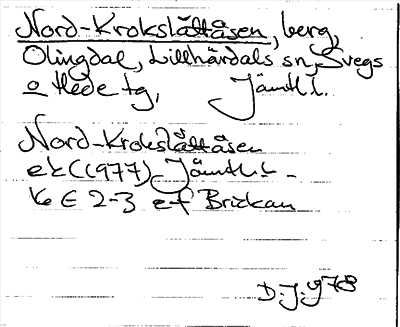 Nord-Krokslåttåsen, berg,
Olingdal, Lillhärdals sn, Svegs
o Hede tg, Jämtl.l.
Nord-Krokslåttåsen
ek (1977) Jämtl.l -
16 E 2-3 e f Brickan
D.J. 978